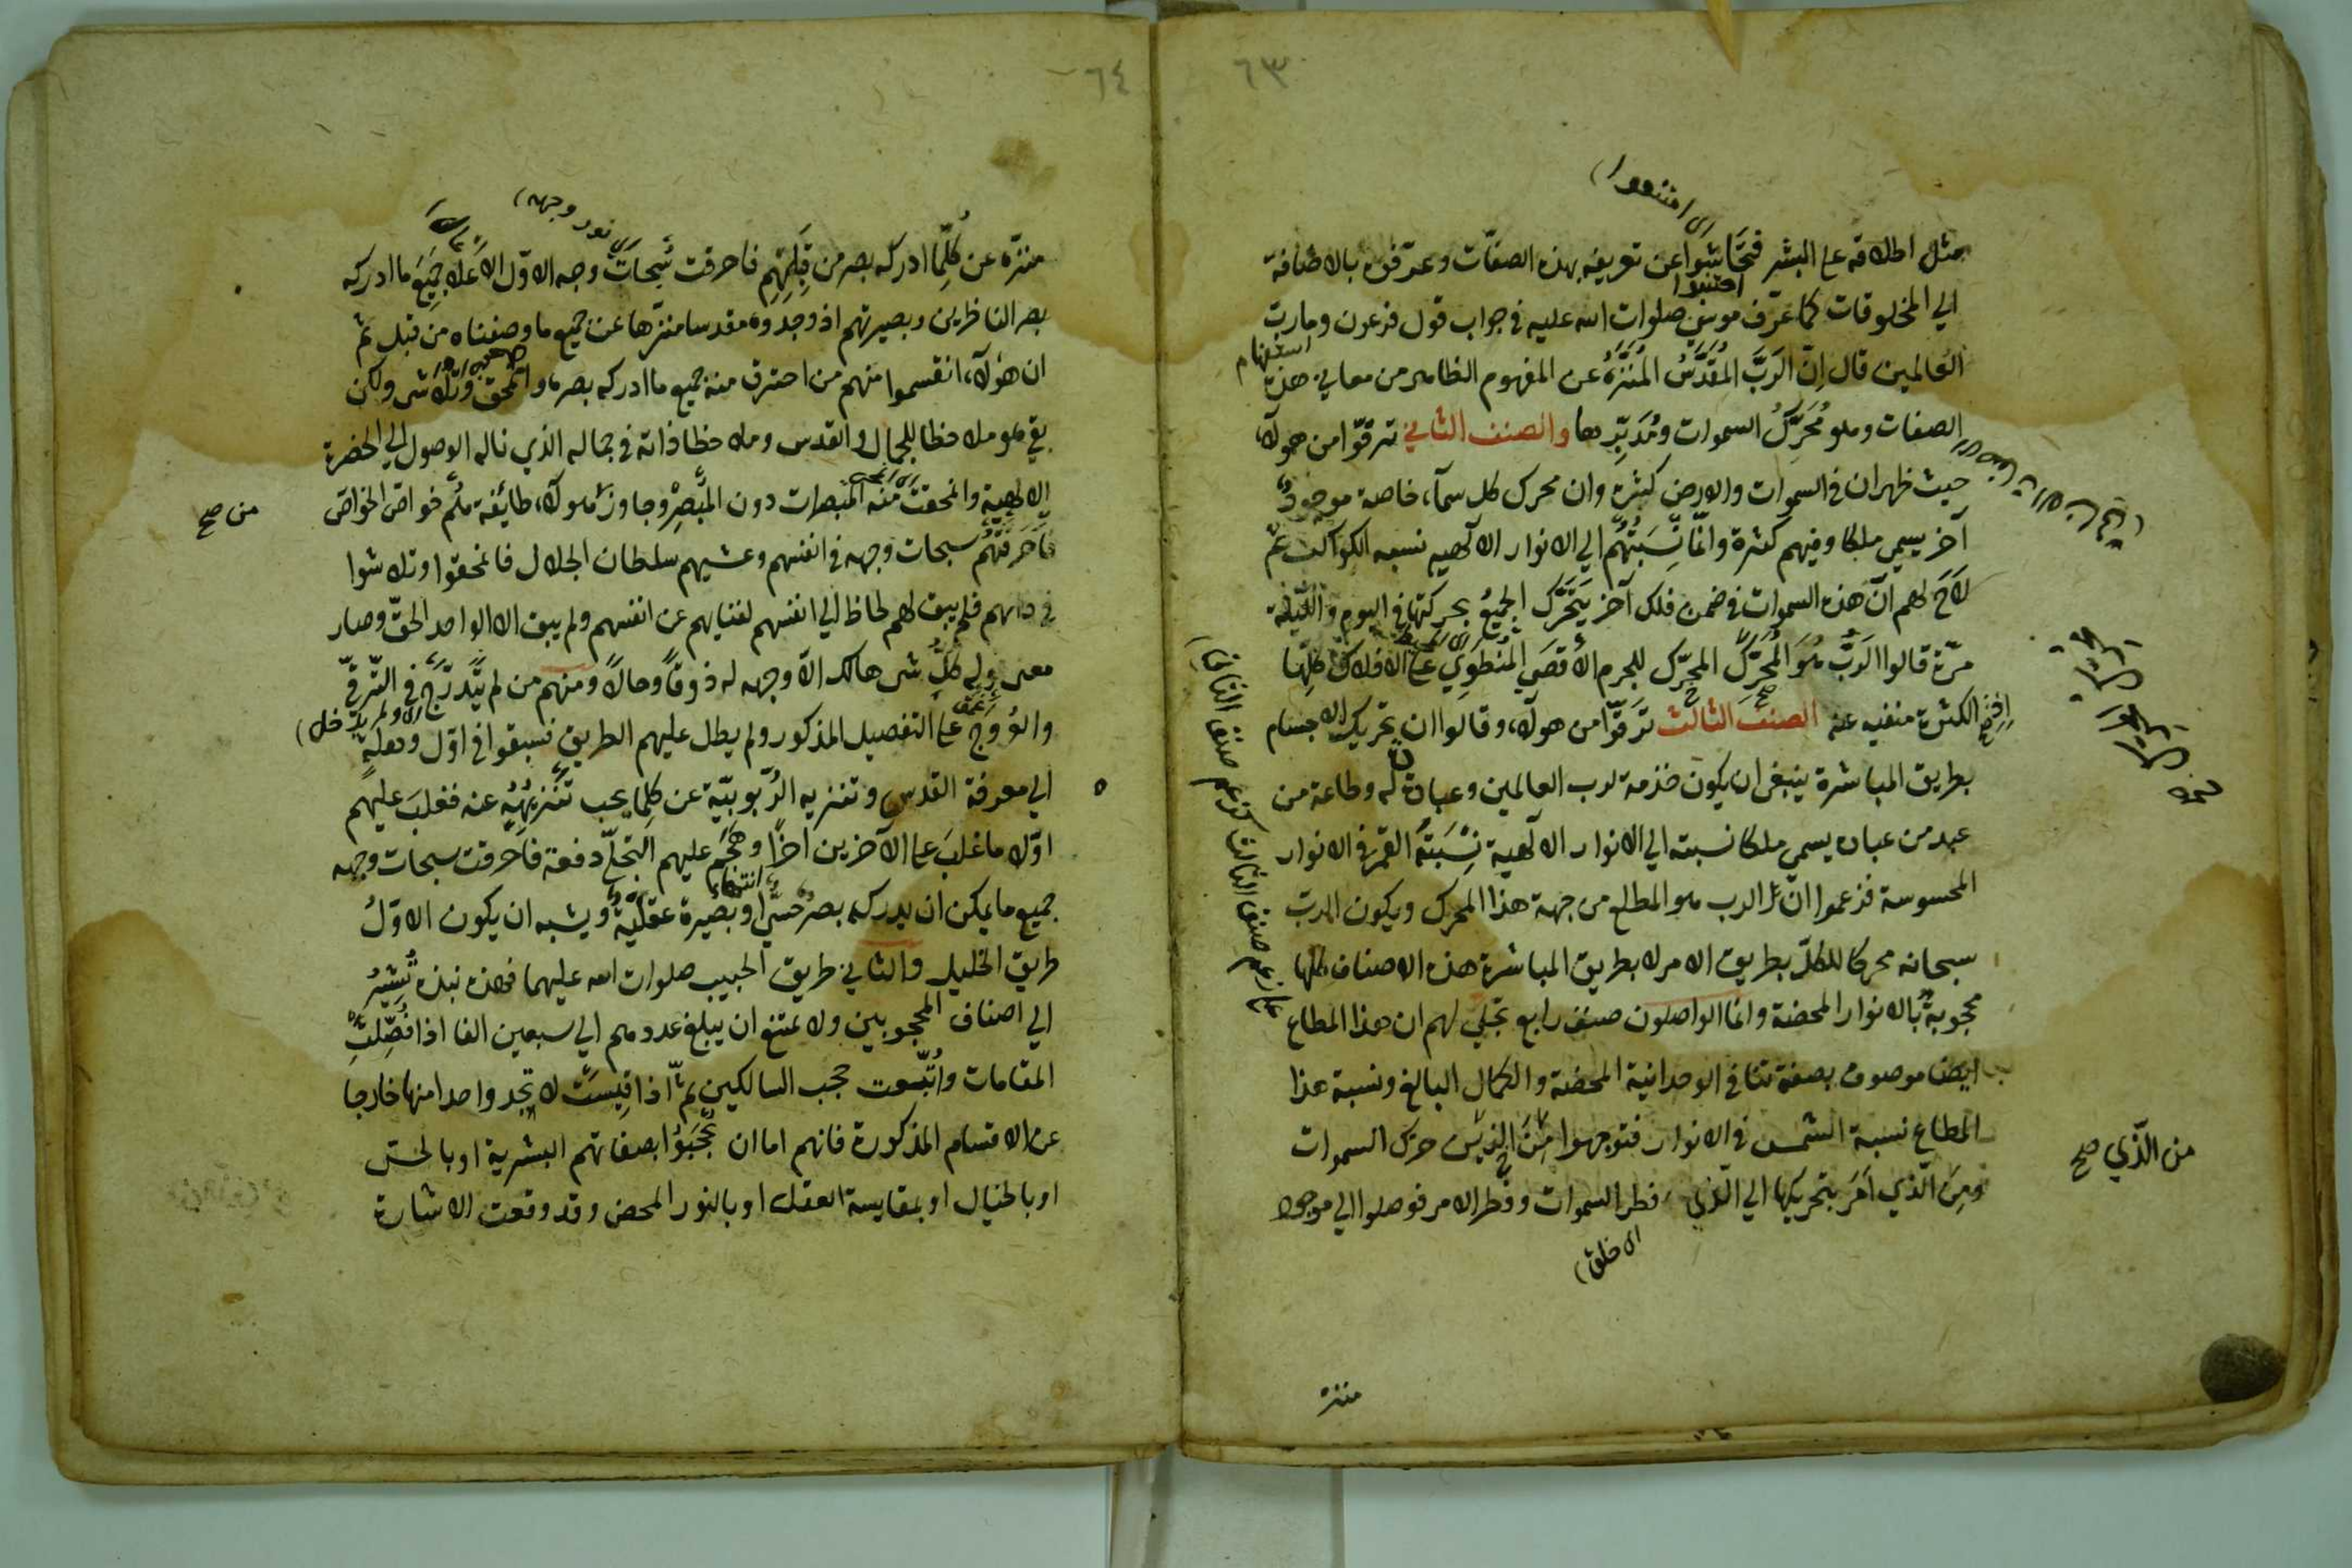 ٦٣
اى امتنعوا
مثل اطلاقه على البشر فتحاشوا عن تعريفه بهذه الصفات وعرّفوه بالاضافة
اجتنبوا
الي المخلوقات كما عرّف موسى صلوات الله عليه في جواب قول فرعون وما رب
استفهام
العالمين قال اِنّ الرَبَّ المُقَدَّسُ المُنَزَّهُ عن المفهوم الظاهر من معاني هذه
الصفات وهو مُحَرِّكُ السموات ومُدَبِّرها والصنف الثاني ترقّوا من هولآء
حيث ظهر ان في السموات والارض كثرة وان محرك كل سمآء خاصة موجودٌ
آخر يسمي ملكا وفيهم كثرة وانّما نِسْبَتُهُم الي الانوار الآلهيه نسبه الكواكب ثم
لاَحَ لهم انّ هذه السموات في ضمن فلك آخر يَتَحَرَّك الجميعُ بحركتها في اليوم والليلة
مرّة قالوا الرَبُّ هُوَ المُحَرِّكُ المحرّك للجرم الأقصَي المُنْطَوِي على الافلاك كلِّها
اِذِ صح
الكثرة منفيه عنه الصنفَ الثالث تَرَقَّوا من هولآء وقالوا ان تحريك الاجسام
بطريق المباشرة ينبغى ان يكون خذمة لرب العالمين وعبادة له وطاعة من
عبد من عباده يسمى ملكا نسبته الي الانوار الآلهية نِسْبَتَهُ القمر في الانوار
المحسوسة فزعموا انّ الرب هو المطلع من جهة هذا المحرك ويكون الرب
سبحانه محركا للكلّ بطريق الامر لا بطريق المباشرة هذه الاصناف كلها
محجوبة بالانوار المحضة وانما الواصلون صنف رابع تجلّي لهم ان هذا المطاع
ايضا موصوف بصفة تنافي الوحدانية المحضة والكمال البالغ ونسبة هذا
المطاع نسبة الشمس في الانوار فتوجهوا مِنَ الذى حرك السموات
من الّذي صح
ومِنَ الّذي اَمَرَ بتحريكها الي الّذي فطر السموات وفطر الامر فوصلوا الي موجود
اى خلق
منزه
٦٤
اى نور وجهه
منزّه عن كُلِّما ادركه بصر من قِبَلِهِم فاحرقت سُبحات وجه الاوّل الاَعلا جَمِيعَ ما ادركه
بصر الناظرين وبصيرتهم اذ وجدوه مقدسا منزّها عن جميع ما وصفناه من قبل ثم
ان هولآء انقسموا منهم من احترق منه جميع ما ادركه بصره وانمحق وتلاشى ولكن
بقي هو ملاحظا للجمال والقدس وملاحظا ذاته في جماله الذي ناله الوصول الي الحضرة
الآلهية وانمحقت منه المبصرات دون المُبْصِرْ وجاوز هولآء طائفة هُم خواصّ الخواصّ
من صح
فَاَحْرَقَتْهُم سبحات وجهه في انفسهم وغشيهم سلطان الجلال فانمحقوا وتلاشوا
في ذاتهم فلم يبق لهم لحاظ الي انفسهم لفنايهم عن انفسهم ولم يبق الا الواحد الحقّ وصار
معنى قوله كلّ شى هالك الاّ وجهه له ذوقًا وحالاً ومنهم من لم يَتَدَرَّج في التّرقّي
والعُرُوج على التفصيل المذكور ولم يطل عليهم الطريق فسبقوا في اوّل وهلةٍ
الي معرفة القدس وتنزيه الرّبوبيّة عن كلما يجب تَنْزِيهُهُ عنه فغلبَ عليهم
اوّلا ما غلبَ على الآخرين آخرًا وهَجَم عليهم التجلّي دفعة فاحرقت سبحات وجهه
جميع ما يمكن ان يدركه بصرٌ حسيّ او بَصيرة عقليّة ويشبه ان يكون الاوّلُ
طريق الخليل والثاني طريق الحبيب صلوات الله عليهما فهذه نبذه تُشِيرُ
الي اصناف المحجوبين ولا يمتنع ان يبلغ عددهم الي سبعين الفا اذا فُصِّلَتِ
المقامات واُتُّبعت حجب السالكين ثمّ اذا قِيسَتْ لا تجد واحدا منها خارجا
عن الاقسام المذكورة فانهم اما ان يُحْجَبُوا بصفاتهم البشرية او بالحس
او بالخيال او بمقايسة العقل او بالنور المحض وقد وقعت الاشارة